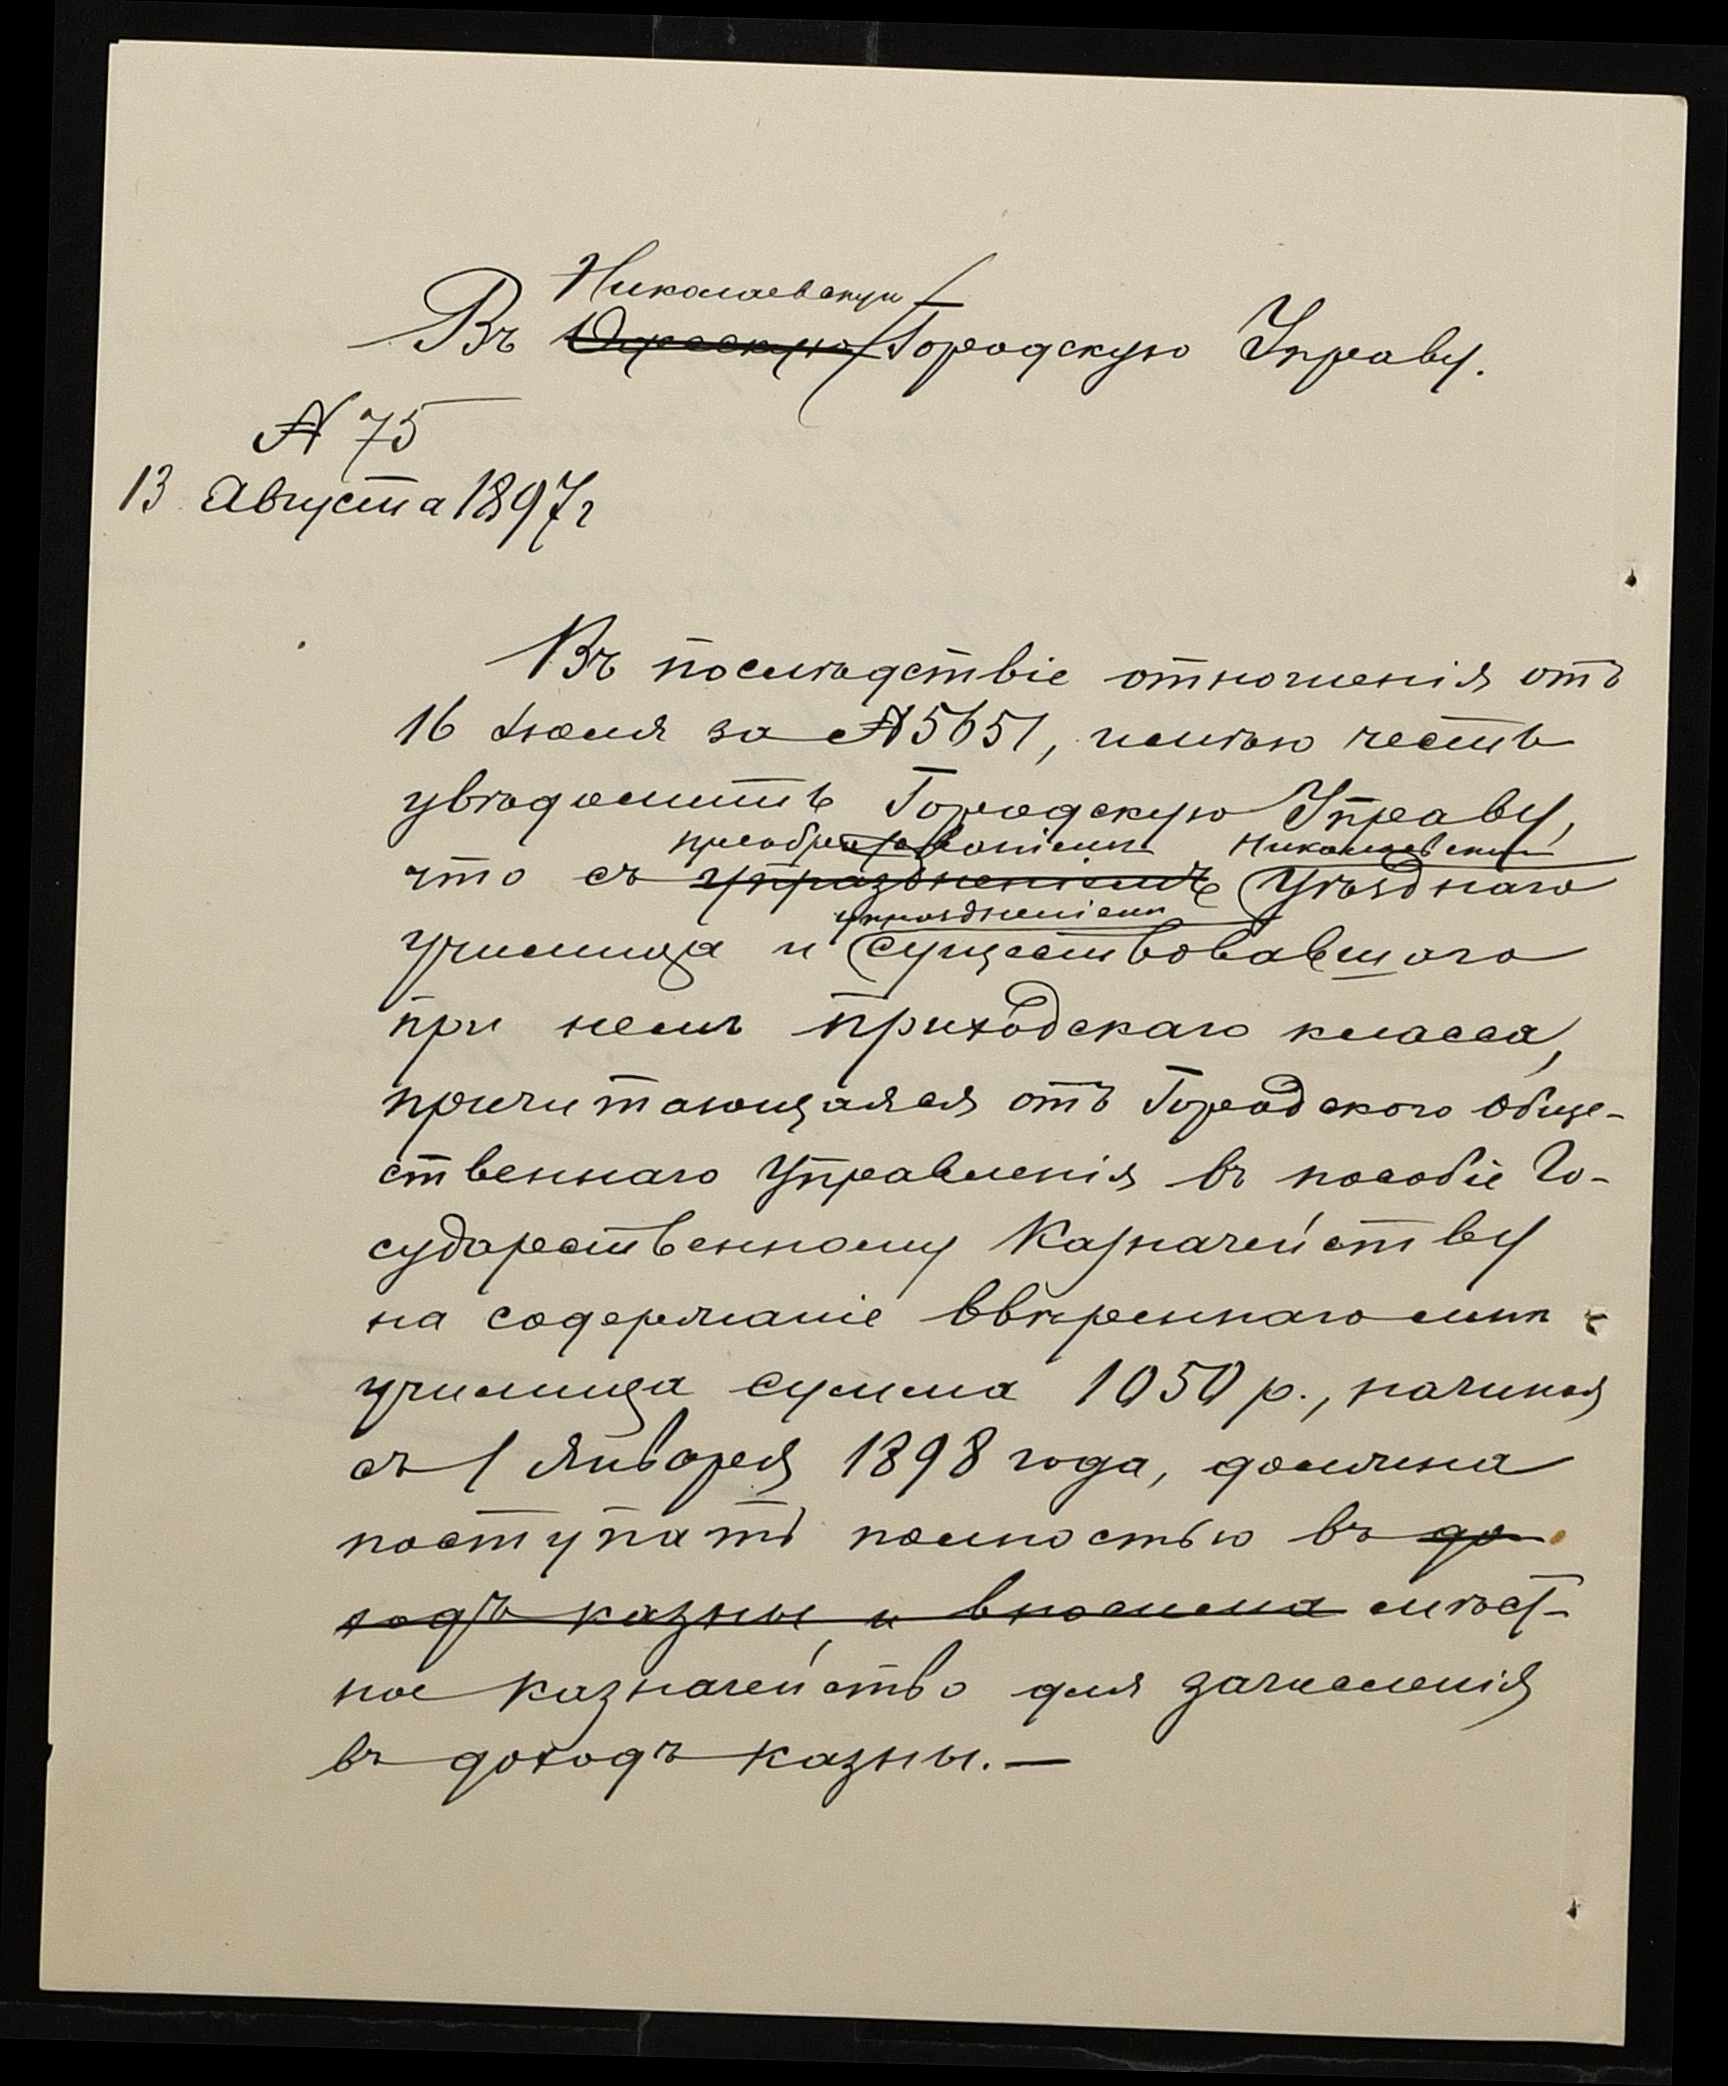 Николаевскую
Въ Одесскую Городскую Управу.
№ 75
13 Августа 1897 г
Въ послѣдствіе отношенія отъ
16 Іюля за № 5651, имѣю честь
увѣдомить Городскую Управу,
преобразованіемъ Николаевскаго
что съ упраздненіемъ Уѣзднаго
упраздненіемъ
училища и существовавшаго
при немъ приходскаго класса,
причитающаяся отъ Городского Обще-
ственнаго Управленія въ пособіе Го-
сударственному Казначейству
на содержаніе ввѣреннаго мнѣ
училища сумма 1050 р., начиная
съ 1 Января 1898 года, должна
поступать полностью въ до-
ходъ казны и вносима мѣст-
ное казначейство для зачисленія
въ доходъ казны. —